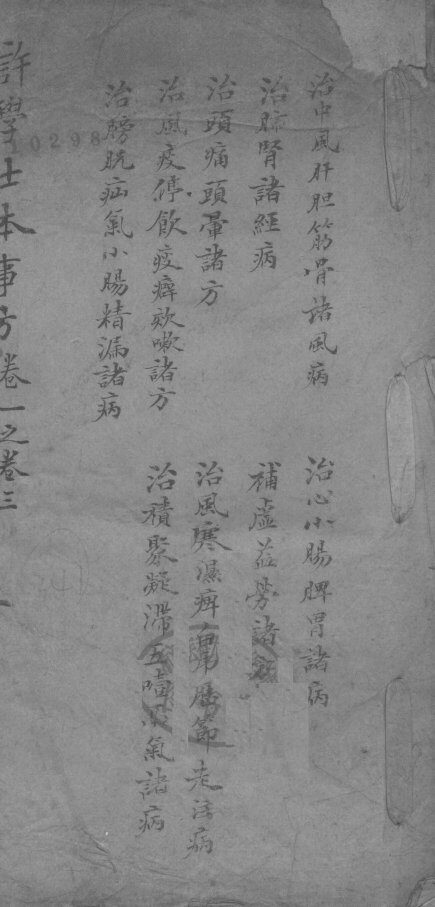 治中風肝胆筋骨諸風病
治心小腸脾胃諸病
治肺腎諸經病
補虛
勞諸
治頭痛頭暈諸方
治風寒濕痺
節走注病
治風痰停飲痰癖欬嗽諸方
治積聚凝滯五噎
氣諸病
治膀胱疝氣小腸精漏諸病
10298
許學士本事方卷一之卷三